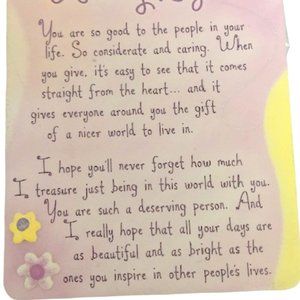 You are so good to the people in your
life. So considerate and caring. When
you give, it's easy to see that it comes
straight from the heart... and it
gives everyone around you the gift
of a nicer world to live in.
I hope you'll never forget how much
I treasure just being in this world with you.
You are such a deserving person. And
I really hope that all your days are
as beautiful and as bright as the
ones you inspire in other people's lives.